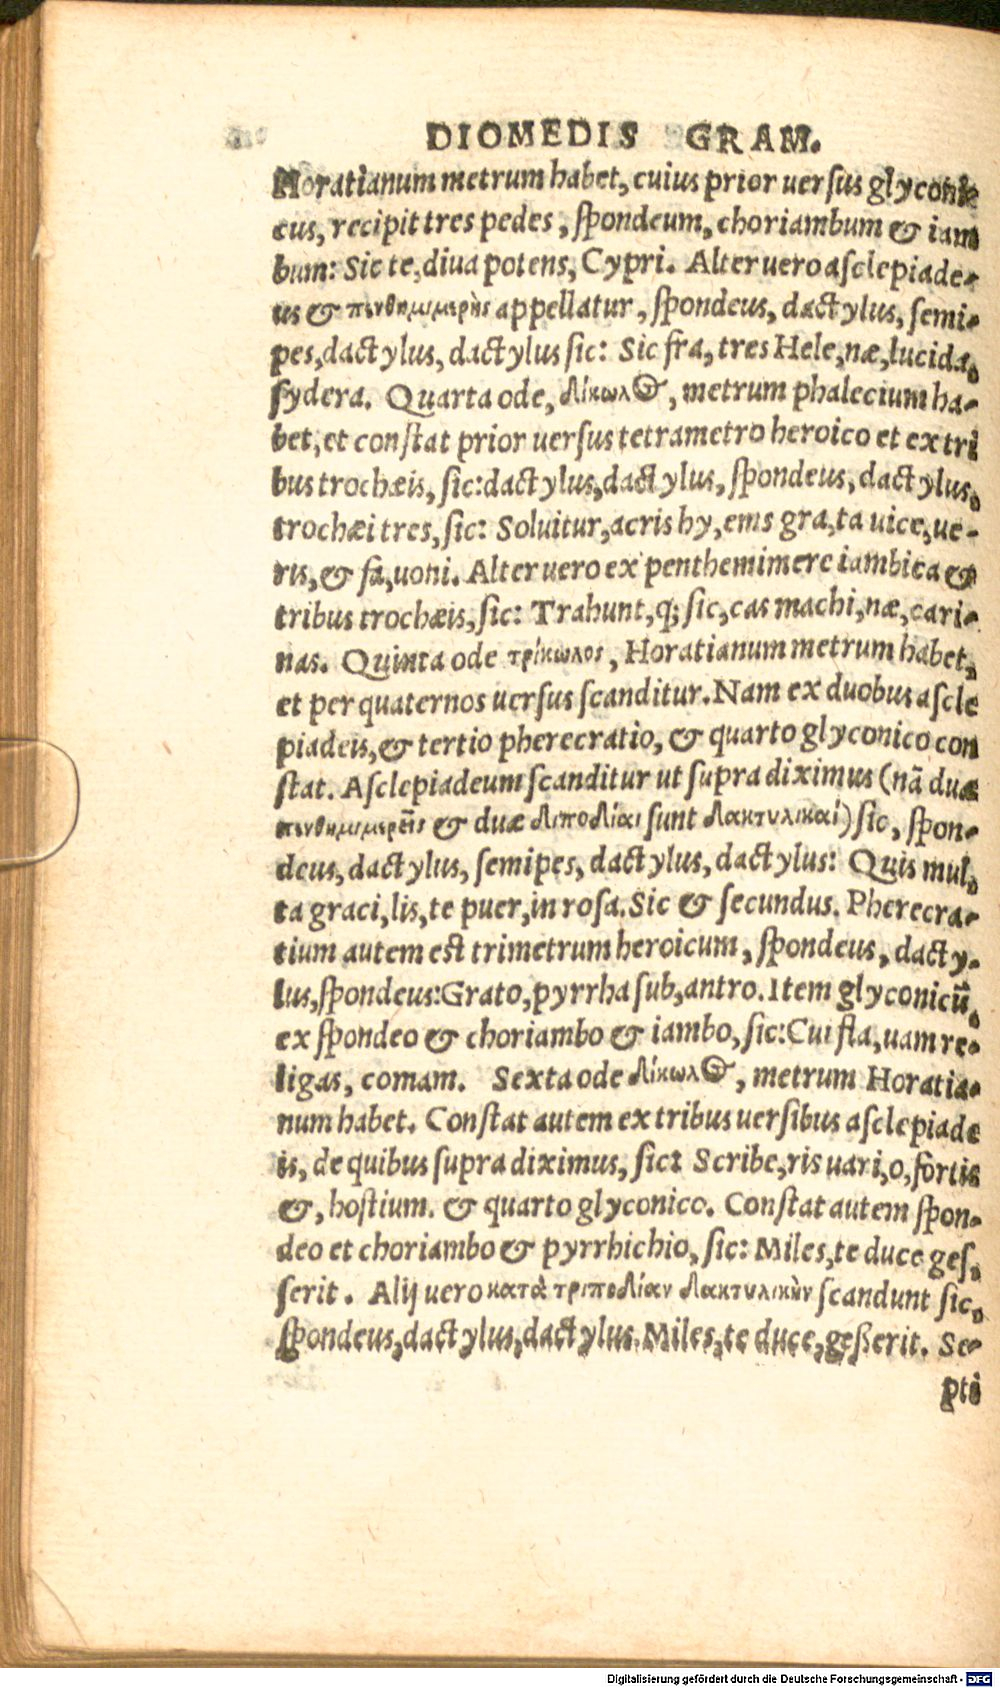 DIOMEDIS GRAM.
Horatianum metrum habet, cuius prior uersus glyconi-
cus, recipit tres pedes, spondeum, choriambum & iam
bum: Sic te, diua potens, Cypri. Alter uero asclepiade-
us & πενθημιμερὴς appellatur, spondeus, dactylus, semi-
pes, dactylus, dactylus sic: Sic fra, tres Hele, næ, lucida,
sydera. Quarta ode, δίκωλος, metrum phalecium ha-
bet, et constat prior uersus tetrametro heroico et ex tri
bus trochæis, sic: dactylus, dactylus, spondeus, dactylus,
trochæi tres, sic: Soluitur, acris hy, ems gra, ta uice, ue-
ris, & fa, uoni. Alter uero ex penthemimere iambica &
tribus trochæis, sic: Trahunt, q; sic, cas machi, næ, cari-
nas. Quinta ode τρίκωλος, Horatianum metrum habet,
et per quaternos uersus scanditur. Nam ex duobus ascle
piadeis, & tertio pherecratio, & quarto glyconico con
stat. Asclepiadeum scanditur ut supra diximus (nã duæ
πενθημιμερεῖς & duæ διποδίαι sunt δακτυλικαί) sic, spon-
deus, dactylus, semipes, dactylus, dactylus: Quis mul,
ta graci, lis, te puer, in rosa. Sic & secundus. Pherecra-
tium autem est trimetrum heroicum, spondeus, dacty-
lus, spondeus: Grato, pyrrha sub, antro. Item glyconicũ,
ex spondeo & choriambo & iambo, sic: Cui fla, uam re-
ligas, comam. Sexta ode δίκωλος, metrum Horatia-
num habet. Constat autem ex tribus uersibus asclepiade
is, de quibus supra diximus, sic: Scribe, ris uari, o, fortis
&, hostium. & quarto glyconico. Constat autem spon-
deo et choriambo & pyrrhichio, sic: Miles, te duce ges,
serit. Alij uero κατὰ τριποδίαν δακτυλικὴν scandunt sic,
spondeus, dactylus, dactylus. Miles, te duce, gesserit. Se-
pti
Digitalisierung gefördert durch die Deutsche Forschungsgemeinschaft - DFG